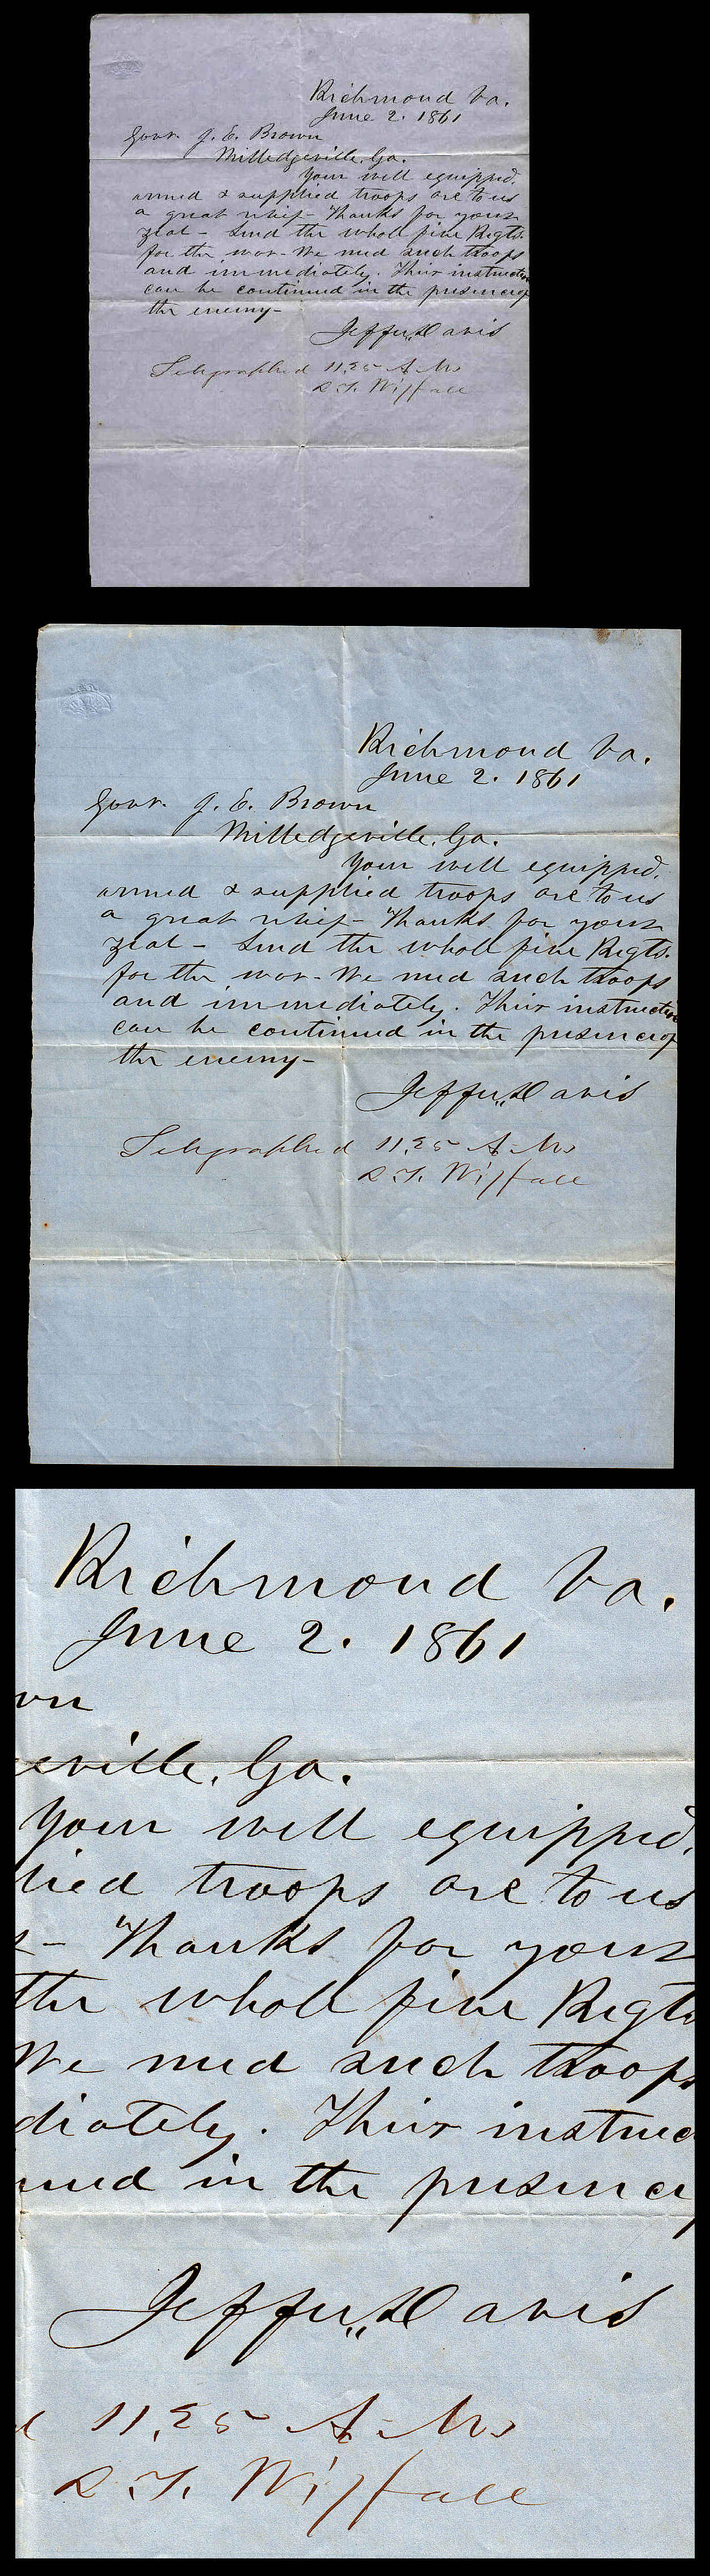 Richmond Va.
June 2. 1861
Govr. J. E. Brown
Milledgeville, Ga.
Your well equipped,
armed & supplied troops are to us
a great relief - Thanks for your
zeal - Send the whole five Regts.
for the war - We need such troops
and immediately. Their instruction
can be continued in the presence of
the enemy -
Jeffn. Davis
Telegraphed 11,25 A. M.
L. T. Wigfall
Richmond Va.
June 2. 1861
Govr. J. E. Brown
Milledgeville, Ga.
Your well equipped,
armed & supplied troops are to us
a great relief - Thanks for your
zeal - Send the whole five Regts.
for the war - We need such troops
and immediately. Their instruction
can be continued in the presence of
the enemy -
Jeffn. Davis
Telegraphed 11,25 A. M.
L. T. Wigfall
Richmond Va.
June 2. 1861
wn
eville, Ga.
Your well equipped,
lied troops are to us
- Thanks for your
the whole five Regts
We need such troops
diately. Their instruc
nued in the presence
Jeffn. Davis
d 11,25 A. M.
L. T. Wigfall